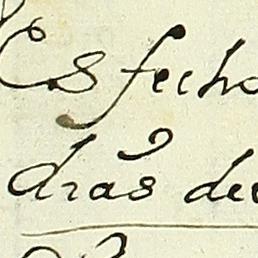 Es fecho
dras de